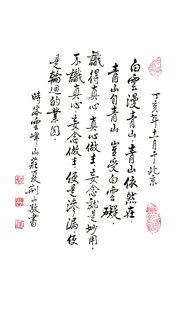 白雲漫青山 青山依然在·
青山自青山 豈受白雲礙·
識得真心 真心做主 妄念就是妙用·
不識真心 妄念做主 便是滲漏 便
是輪迴的業因·
丁亥年十一月于北京
時客雲峰山莊